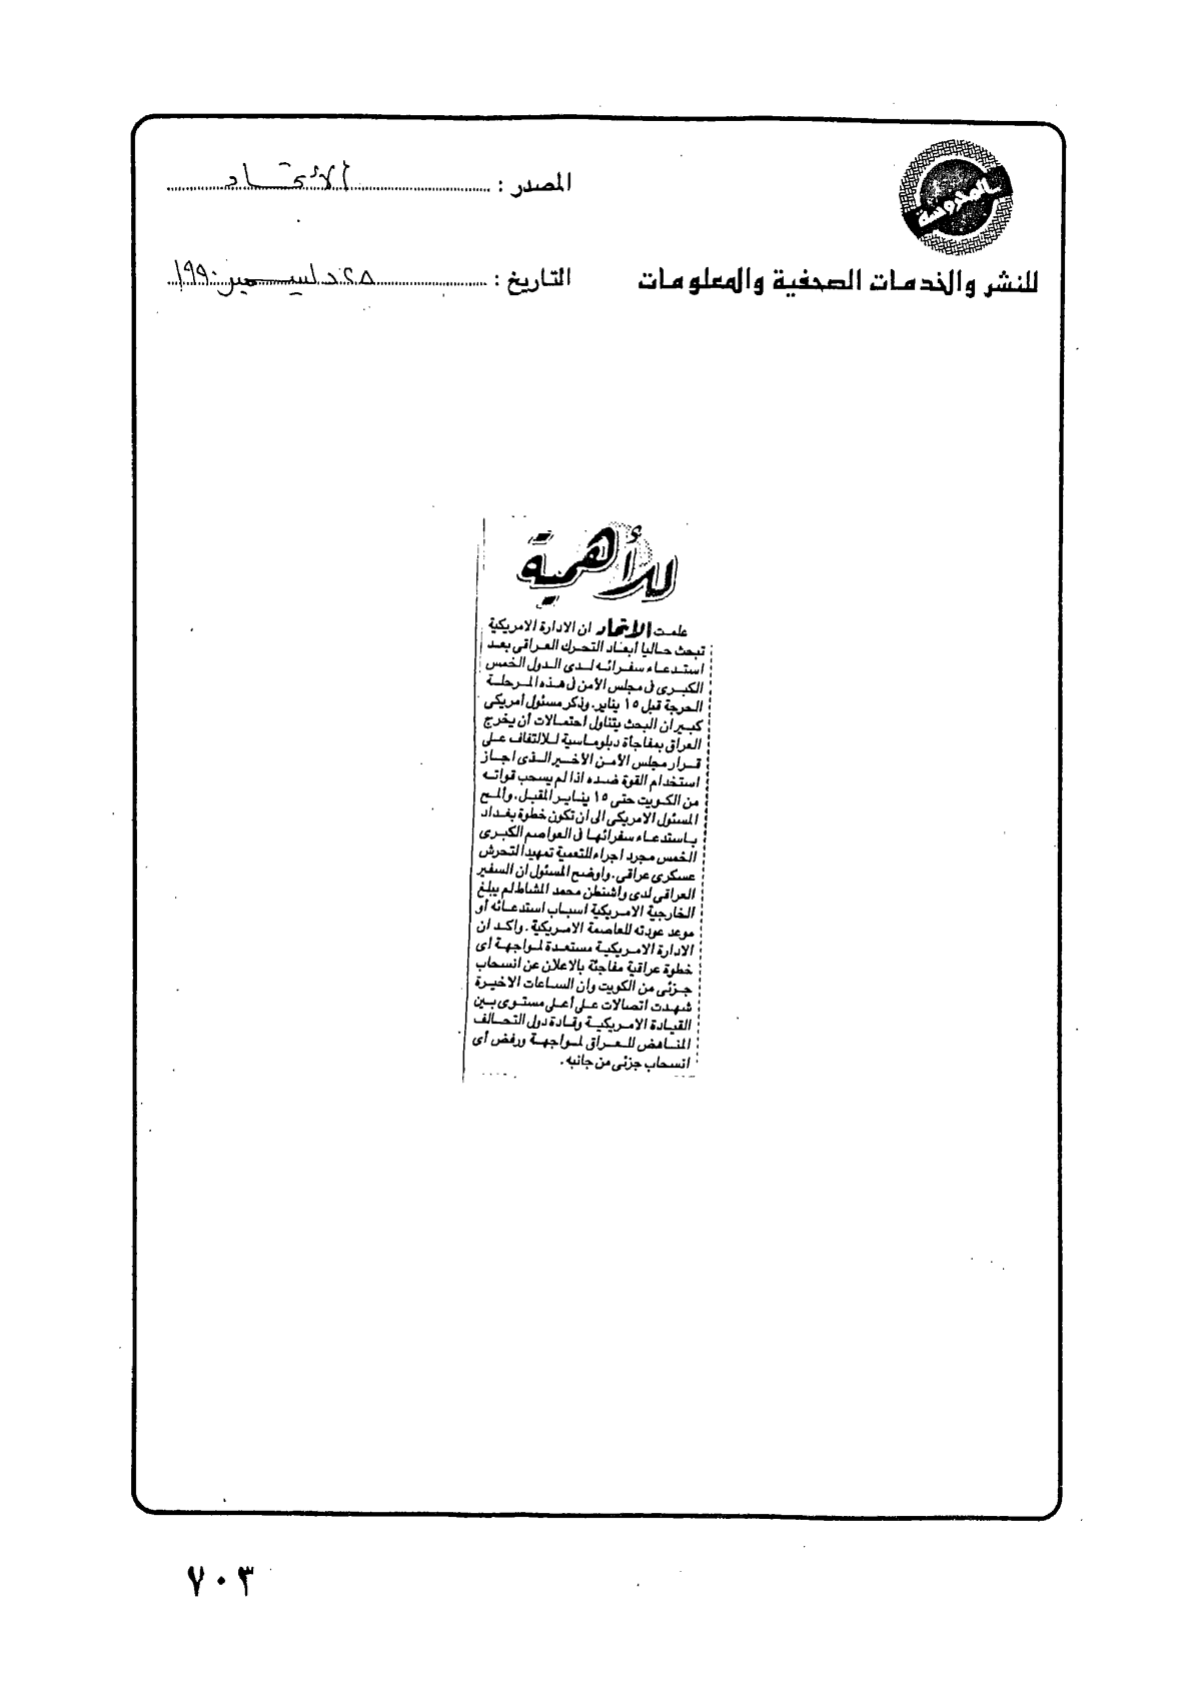 المحروسة
للنشر والخدمات الصحفية والمعلومات
المصدر : الاتحاد
التاريخ : ٢٥ ديسمبر ١٩٩٠
للأهمية
علمت الاتحاد ان الادارة الامريكية
تبحث حاليا أبعاد التحرك العراقى بعد
استدعاء سفرائه لدى الدول الخمس
الكبرى فى مجلس الأمن فى هذه المرحلة
الحرجة قبل ١٥ يناير. وذكر مسئول أمريكى
كبير أن البحث يتناول احتمالات أن يخرج
العراق بمفاجأة دبلوماسية للالتفاف على
قرار مجلس الأمن الأخير الذى اجاز
استخدام القوة ضده اذا لم يسحب قواته
من الكويت حتى ١٥ يناير المقبل. والمح
المسئول الامريكى الى ان تكون خطوة بغداد
باستدعاء سفرائها فى العواصم الكبرى
الخمس مجرد اجراء للتعمية تمهيدا لتحرش
عسكرى عراقى. واوضح المسئول ان السفير
العراقى لدى واشنطن محمد المشاط لم يبلغ
الخارجية الامريكية اسباب استدعائه أو
موعد عودته للعاصمة الامريكية. واكد ان
الادارة الامريكية مستعدة لمواجهة اى
خطوة عراقية مفاجئة بالاعلان عن انسحاب
جزئى من الكويت وان الساعات الاخيرة
شهدت اتصالات على أعلى مستوى بين
القيادة الامريكية وقادة دول التحالف
المناهض للعراق لمواجهة ورفض أى
انسحاب جزئى من جانبه.
٧٠٣